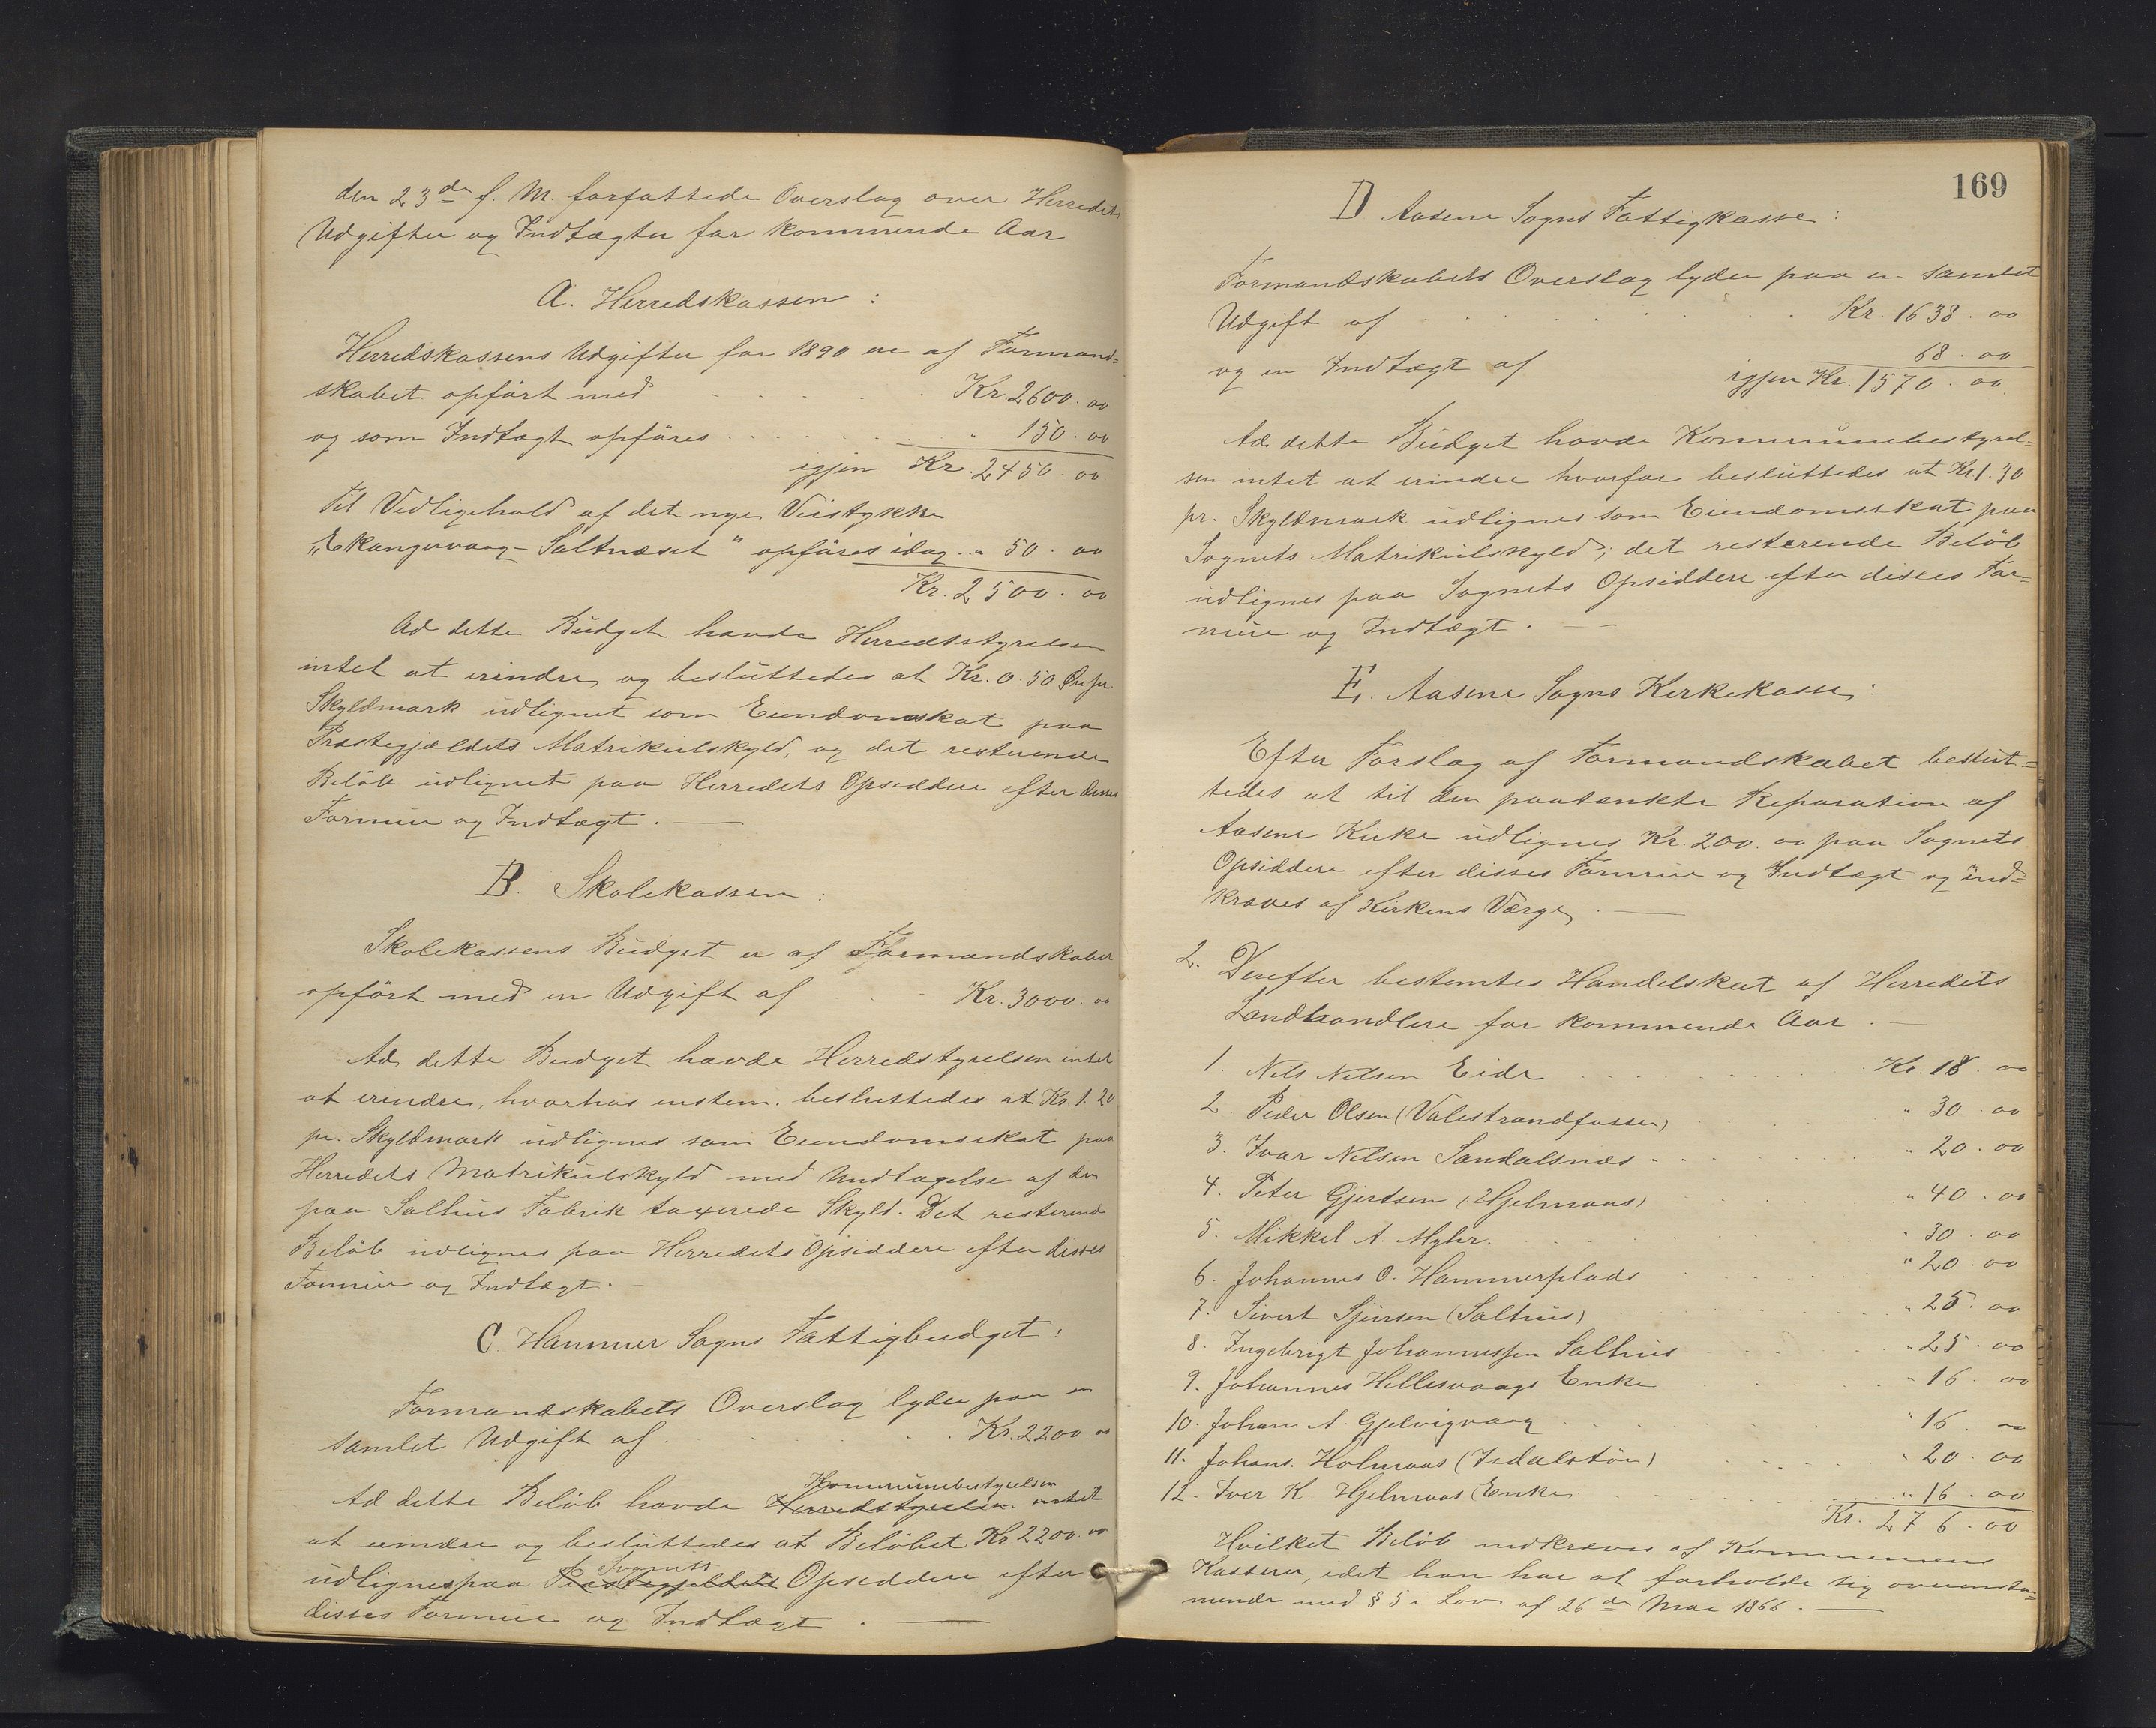 den 23de f. M. forfattede Overslag over Herredets
Udgifter og Indtægter for kommende Aar
A. Herredskassen:
Herredskassens Udgifter for 1890 ere af Formand=
skabet opført med . . . . . . Kr. 2600. 00
og som Indtægt opføres . . . . . . " 150. 00
igjen Kr. 2450. 00
Til Vedligehold af det nye Veistykke
"Ekangervaag-Saltnæset" opføres idag .. " 50. 00
Kr. 2500. 00
Ad dette Budget havde Herredsstyrelsen
intet at erindre, og besluttedes at Kr. 0.50 Øre pr.
Skyldmark udlignet som Eiendomsskat paa
Præstegjældets Matrikulskyld, og det resterende
Beløb udlignet paa Herredets Opsiddere efter disses
Formue og Indtægt. —
B. Skolekassen:
Skolekassens Budget er af Formandskabet
opført med en Udgift af . . Kr. 3000. 00
Ad dette Budget havde Herredstyrelsen intet
at erindre, hvorhos enstem. besluttedes at Kr. 1.20
pr. Skyldmark udlignes som Eiendomsskat paa
Herredets Matrikulskyld med Undtagelse af den
paa Salhus Fabrik taxerede Skyld. Det resterende
Beløb udlignes paa Herredets Opsiddere efter disses
Formue og Indtægt.
C. Hammer Sogns Fattigbudget:
Formandskabets Overslag lyder paa en
samlet Udgift af . . . . . Kr. 2200. 00
Kommunebestyrelsen
Ad dette Beløb havde Herredstyrelsen intet
at erindre og besluttedes at Beløbet Kr. 2200. 00
Sognets
udlignes paa Præstegjældets Opsiddere efter
disses Formue og Indtægt. —
169
D Aasene Sogns Fattigkasse:
Formandskabets Overslag lyder paa en samlet
Udgift af . . . . . . . Kr. 1638. 00
og en Indtægt af 68. 00
igjen Kr. 1570. 00
Ad dette Budget havde Kommunebestyrel=
sen intet at erindre hvorfor besluttedes at Kr. 1.30
pr. Skyldmark udlignes som Eiendomsskat paa
Sognets Matrikulskyld; det resterende Beløb
udlignes paa Sognets Opsiddere efter disses For=
mue og Indtægt. —
E. Aasene Sogns Kirkekasse:
Efter Forslag af Formandskabet beslut=
tedes at til den paatænkte Reparation af
Aasene Kirke udlignes Kr. 200. 00 paa Sognets
Opsiddere efter disses Formue og Indtægt og ind=
kræves af Kirkens Værge. —
2. Derefter bestemtes Handelskat af Herredets
Landhandlere for kommende Aar. —
1. Nils Nilsen Eide . . . . . Kr. 18. 00
2. Peder Olsen (Valestrandfossen) . . " 30. 00
3. Ivar Nilsen Sandalsnæs . . . . " 20. 00
4. Peter Gjertsen (Hjelmaas) . . . " 40. 00
5. Mikkel A. Myhr. . . . . " 30. 00
6. Johannes O. Hammerplads . . . " 20. 00
7. Sivert Sjursen (Salhus) . . . " 25. 00
8. Ingebrigt Johannessen Salhus . . . " 25. 00
9. Johannes Hellesvaags Enke . . . " 16. 00
10. Johan A. Gjelvigvaag . . . . " 16. 00
11. Johans. Holmaas (Isdalstøen) . . . " 20. 00
12. Iver K. Hjelmaas Enke. . . . . " 16. 00
Kr. 276. 00
Hvilket Beløb indkræves af Kommunens
Kasserer, idet han har at forholde sig overensstem=
mende med § 5 i Lov af 26de Mai 1866. —